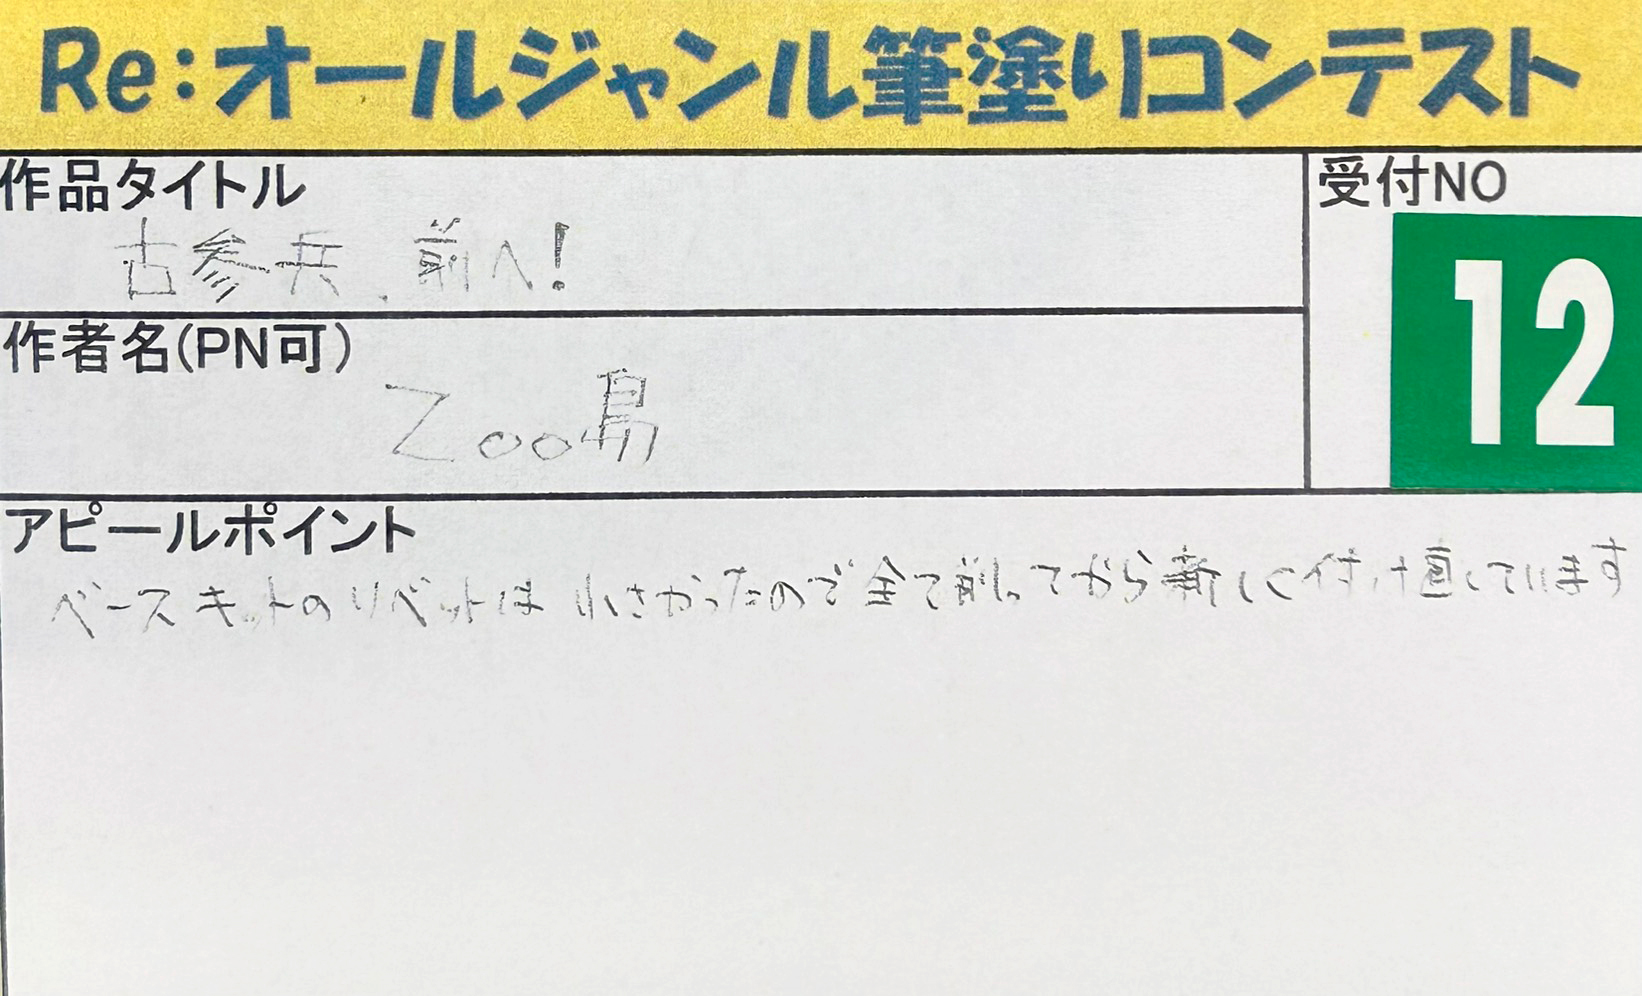 Re:オールジャンル筆塗りコンテスト
作品タイトル
受付NO
古参兵、前へ!
12
作者名(PN可)
Zoo島
アピールポイント
ベースキットのリベットは小さかったので全て削ってから新しく付け直しています